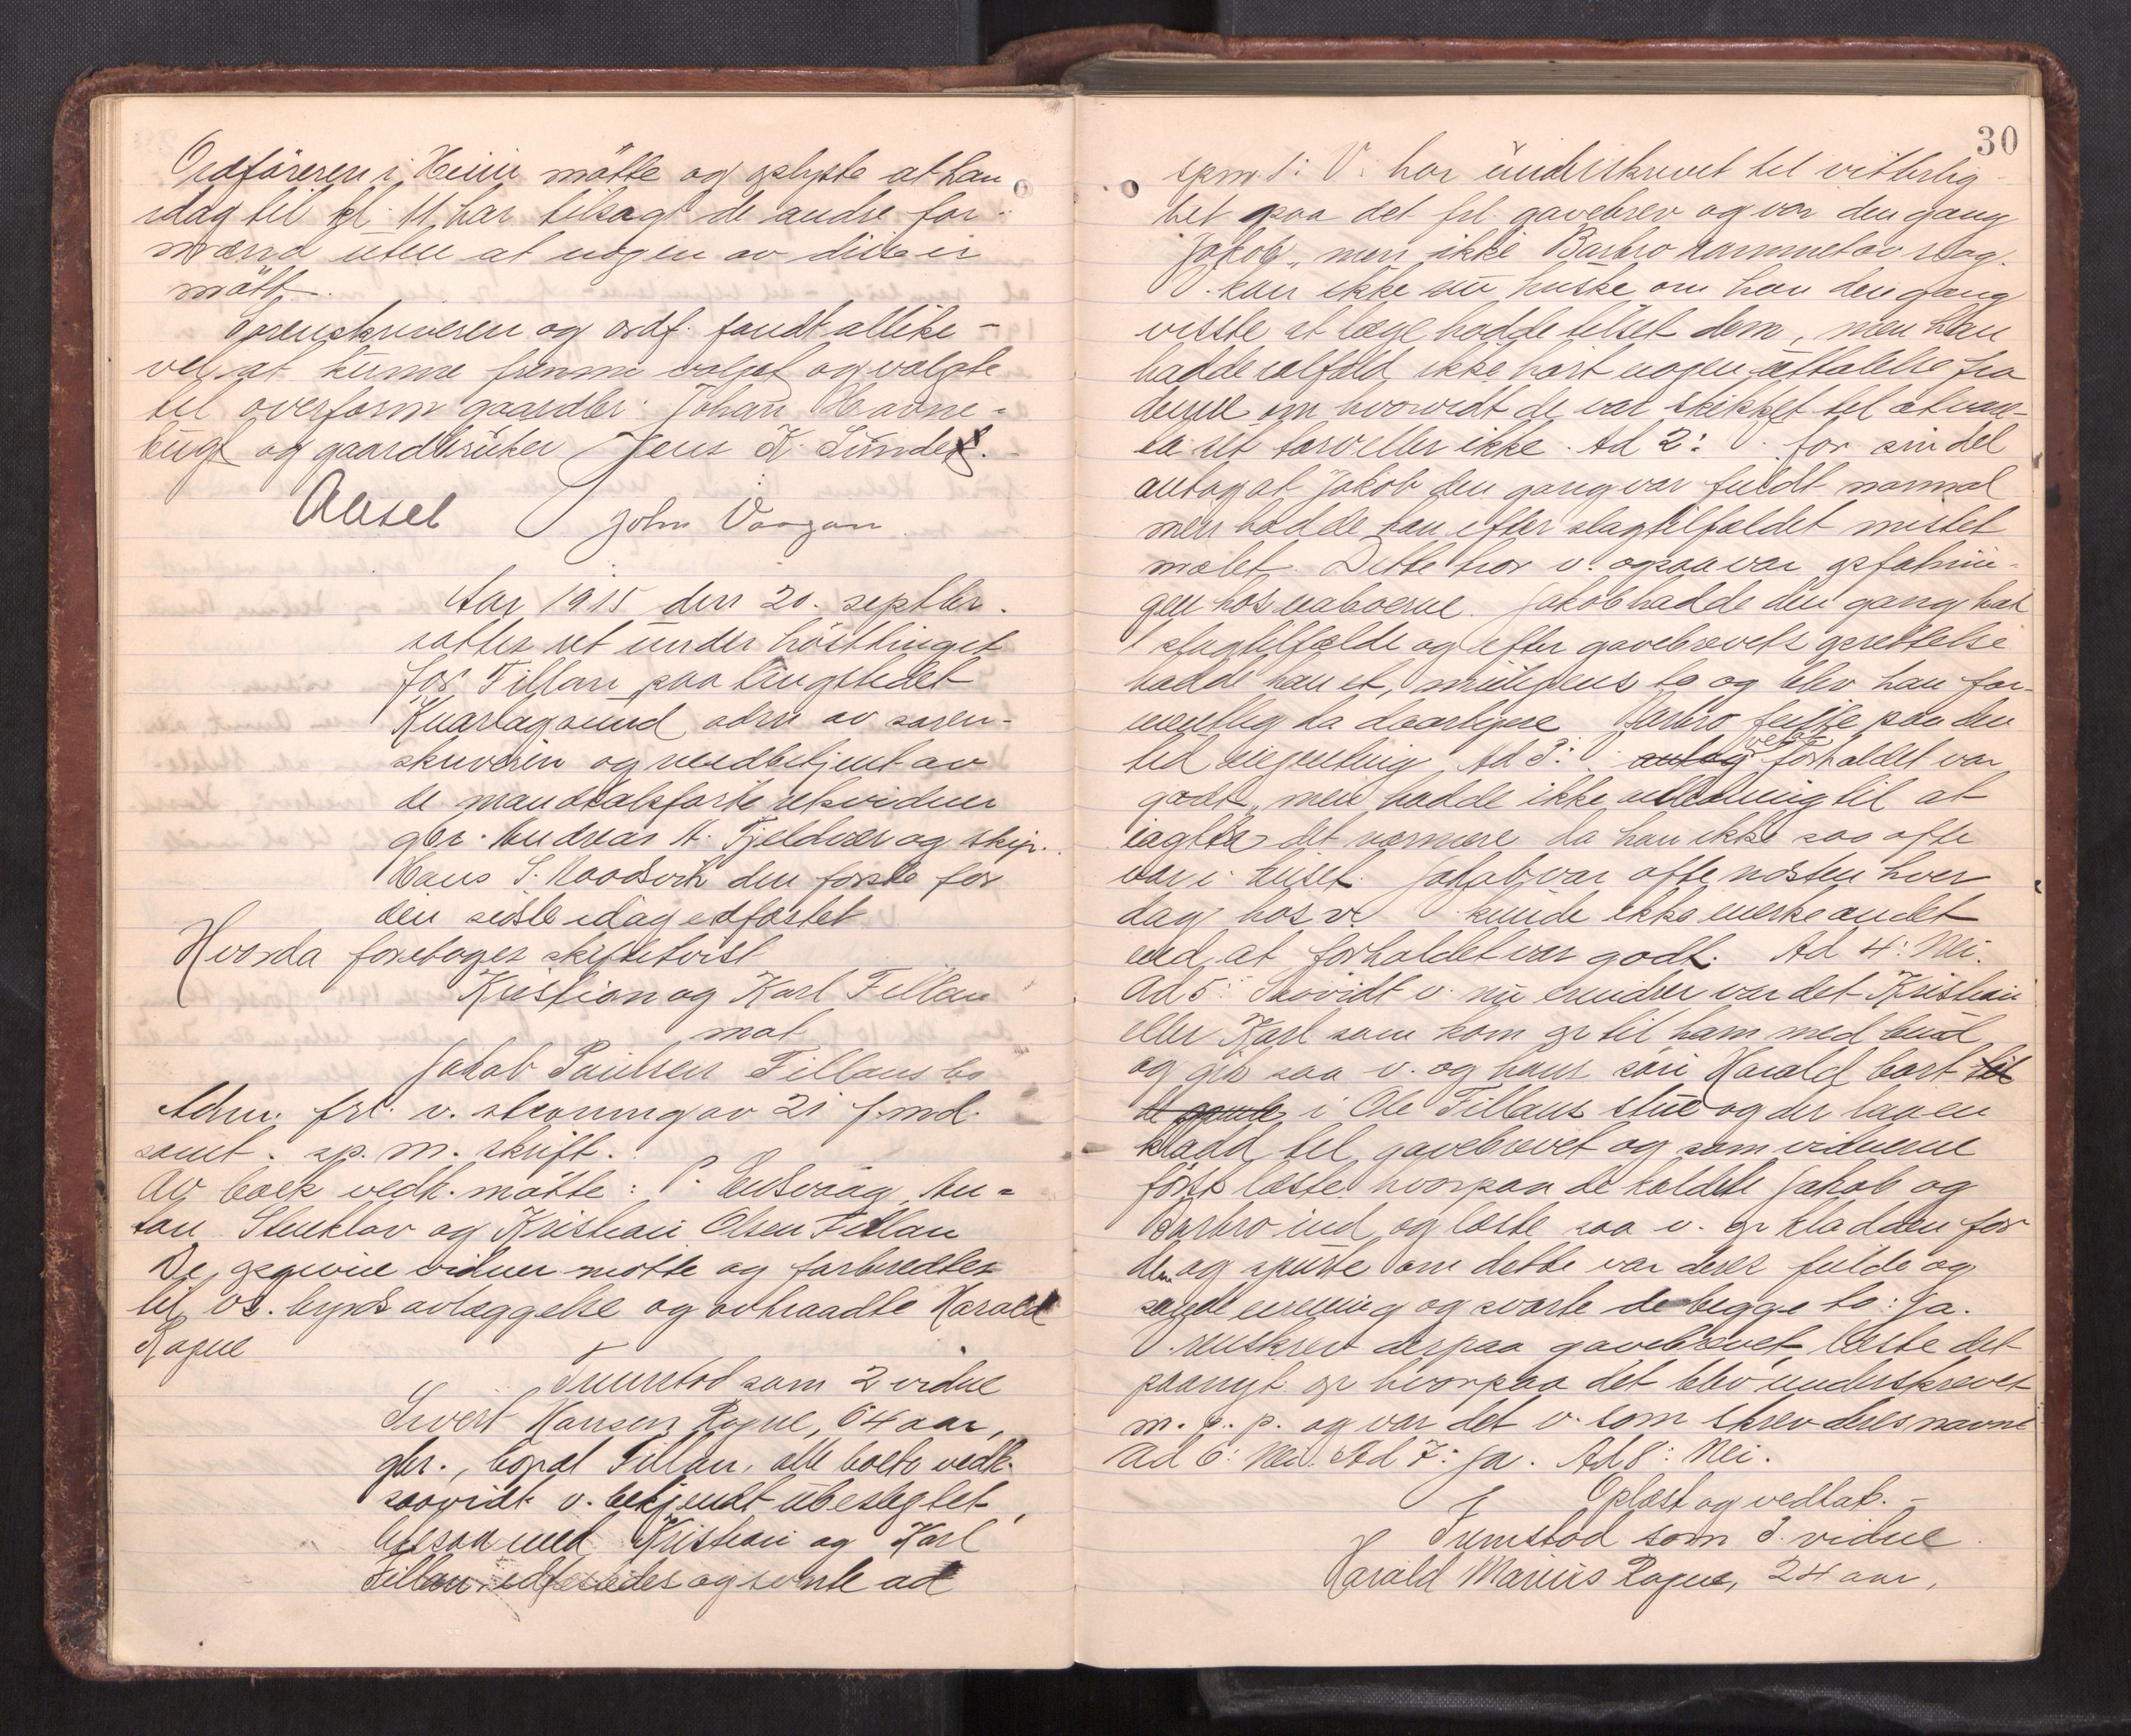 Ordföreren i Heim mötte og oplyste at han
idag til kl. 11 har tilsagt de andre for-
mænd uten at nogen av disse er
mött.
Sorenskriveren og ordf. fandt allike-
vel at kunne fremme valget og valgte
til overform gaardbr. Johan Havne-
bugt og gaardbruker Jens K. Sunde.
Aksel John Vaagan
Aar 1915 den 20. septbr.
sattes ret under hösttinget
for Fillan paa tingstedet
Knarlagsund adm av soren-
skriveren og medbetjent av
de mandtalsförte retsvidner
gbr. Andreas H. Fjeldvær og skip.
Hans S. den förste for
den sidste idag edfæstet
Hvorda foretoges skiftetvist
Kristian og Karl Fillan
mot
Jakob Paulsen Fillans bo
Adm. frl. v. stevning av 21 f. md.
samt sp. m. skrift.
Av boets vedk. mötte: P. Ulsvaag, An-
ton Stenklov og Kristian Olsen Fillan
De opgivne vidner mötte og forberedtes
til vs. byrds avlæggelse og avtraadte Harald
Rogne
Fremstod som 2 vidne
Sivert Hansen Rogne, 64 aar,
gbr., bopæl Fillan, alle boets vedk.
saavidt v. bekjendt ubeslegtet,
likesaa med Kristian og Karl
Fillan, edfæstedes og svarte ad
30
spm 1: V. har underskrevet til vitterlig-
het paa det frl. gavebrev og var den gang
Jakob, men ikke Barbro rammet av slag.
V. kan ikke nu huske om han den gang
visste at læge hadde tilset dem, men han
hadde ialfald ikke hört nogen uttalelse fra
denne om hvorvidt de var skikket til at vare-
ta sit tarv eller ikke. Ad 2: V. for sin del
antog at Jakob den gang var fuldt normal
men hadde han efter slagtilfældet mistet
mælet. Dette tror v. ogsaa var opfatnin-
gen hos naboerne. Jakob hadde den gang hat
1 slagtilfælde og efter gavebrevets oprettelse
hadde han et, muligens to og blev han for-
mentlig da daarligere. Barbro feilte paa den
tid ingenting. Ad 3: V. antog forholdet var
godt, men hadde ikke anledning til at
iagtta det nærmere da han ikke saa ofte
var i huset. Jakob var ofte næsten hver
dag hos v. V. kunde ikke merke andet
end at forholdet var godt. Ad 4: Nei.
Ad 5: Saavidt v. nu erindrer var det Kristian
eller Karl som kom op til ham med bud
og gik saa v. og hans sön Harald bort til
i Ole Fillans stue og der laa en
kladd til gavebrevet og som vidnerne
först læste hvorpaa de kaldte Jakob og
Barbro ind og læste saa v. op kladden for
dem og spurte om dette var deres fulde og
sande mening og svarte de begge to: Ja.
V. renskrev derpaa gavebrevet, læste det
paanyt op hvorpaa det blev underskrevet
m. p. p. og var det v. som skrev deres navne
Ad 6: Nei. Ad 7: Ja. Ad 8: Nei.
Oplæst og vedtat.
Fremstod som 3. vidne
Harald Marius Rogne, 24 aar,